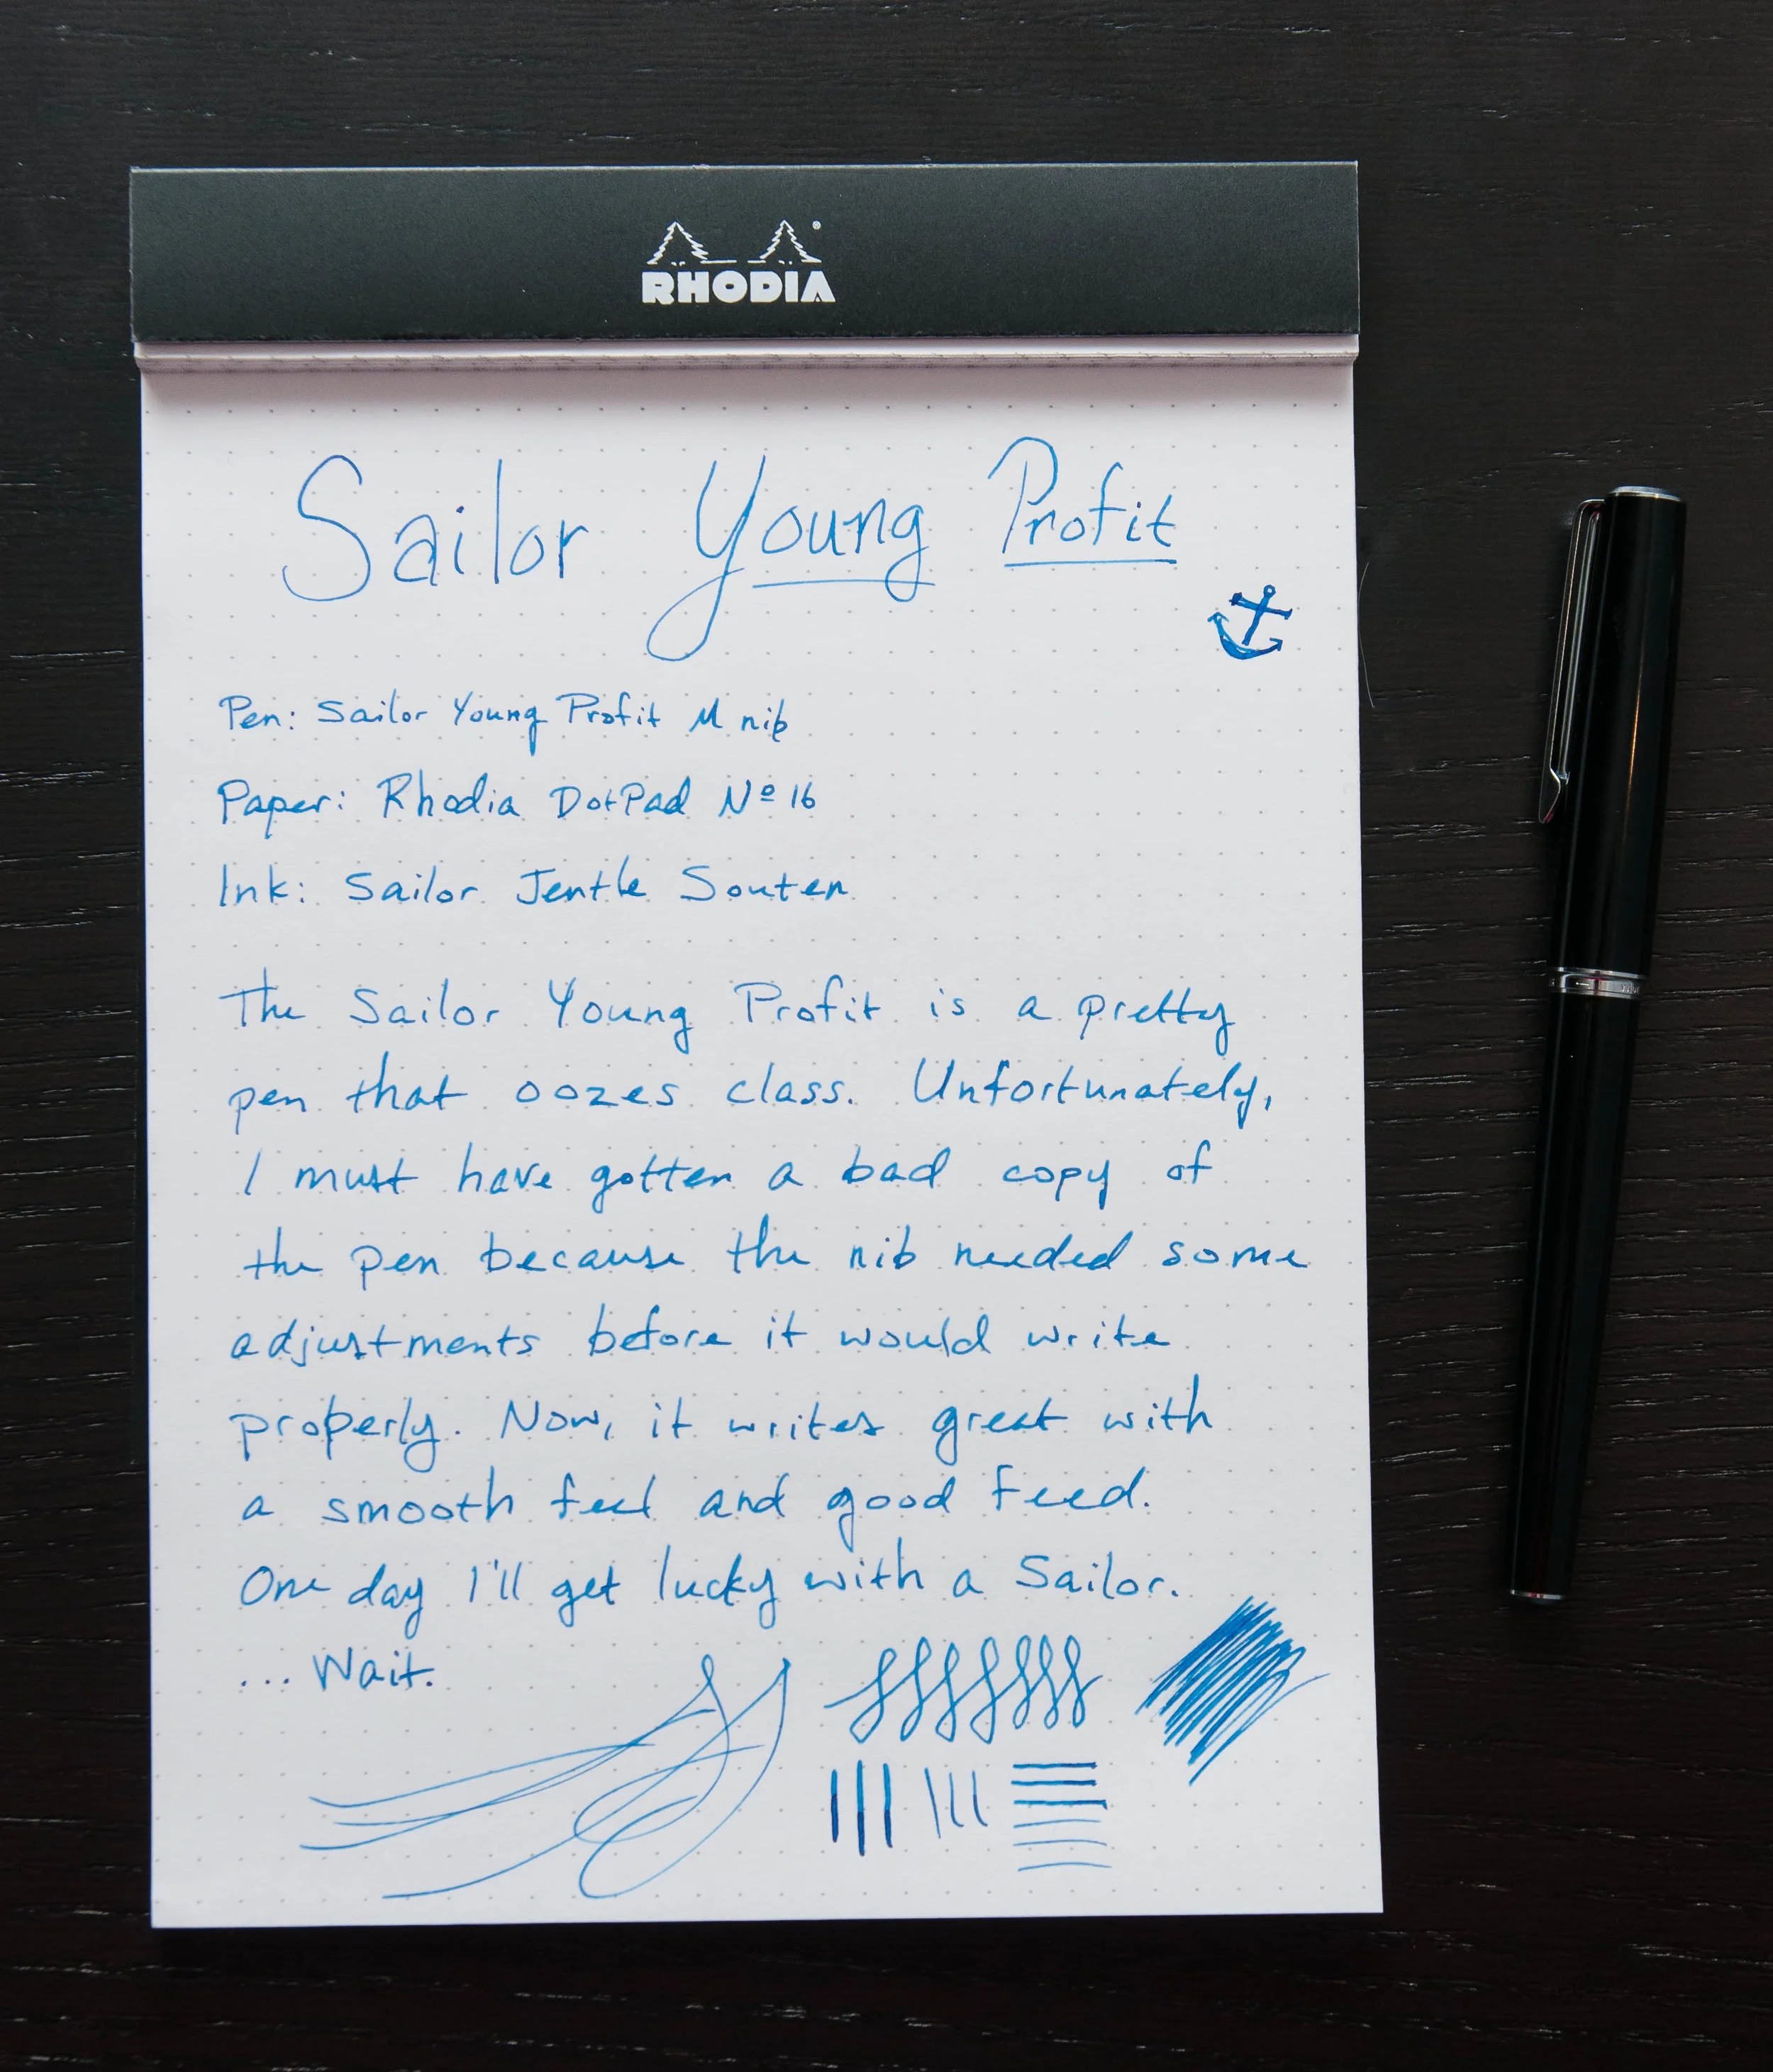 RHODIA
Sailor Young Profit
Pen: Sailor Young Profit M nib
Paper: Rhodia DotPad Nº 16
Ink: Sailor Jentle Souten
The Sailor Young Profit is a pretty
pen that oozes class. Unfortunately,
I must have gotten a bad copy of
the pen because the nib needed some
adjustments before it would write
properly. Now, it writes great with
a smooth feel and good feed.
One day I'll get lucky with a Sailor.
... Wait.